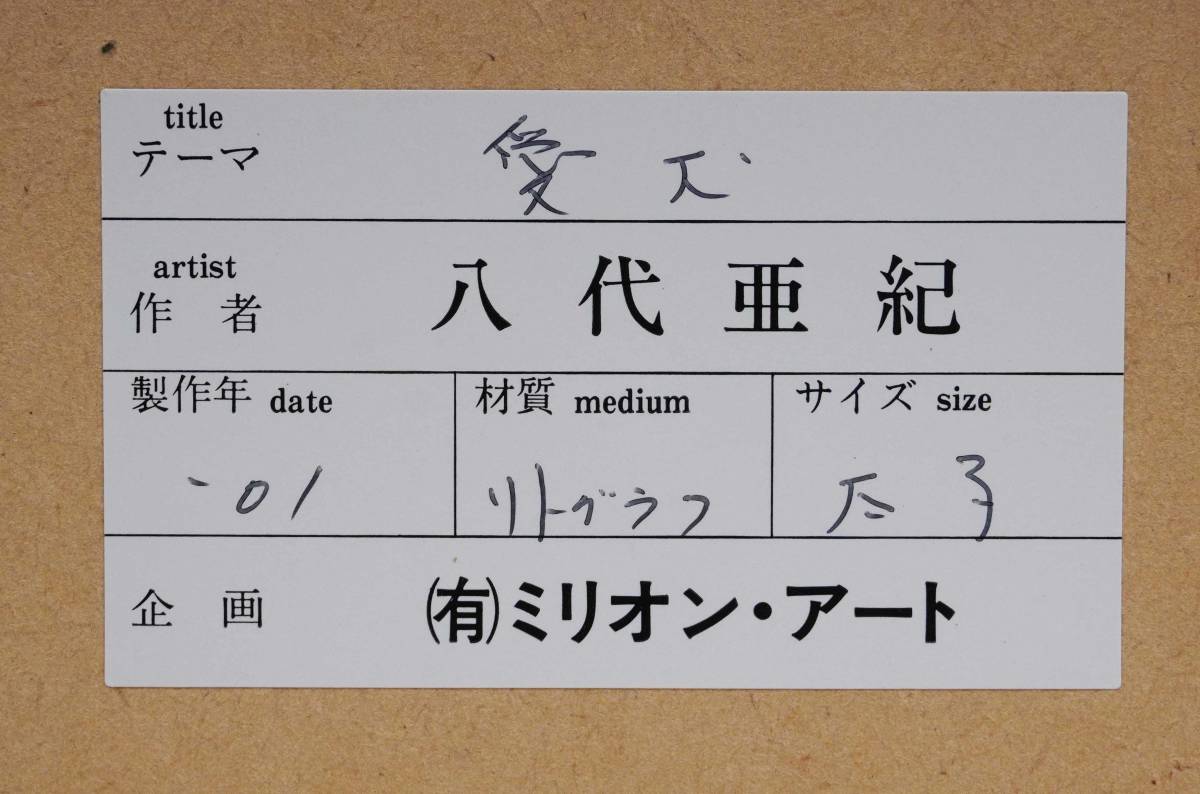 title
テーマ 愛犬
artist
作者 八代亜紀
製作年 date
'01
材質 medium
リトグラフ
サイズ size
太子
企画 ㈲ミリオン・アート